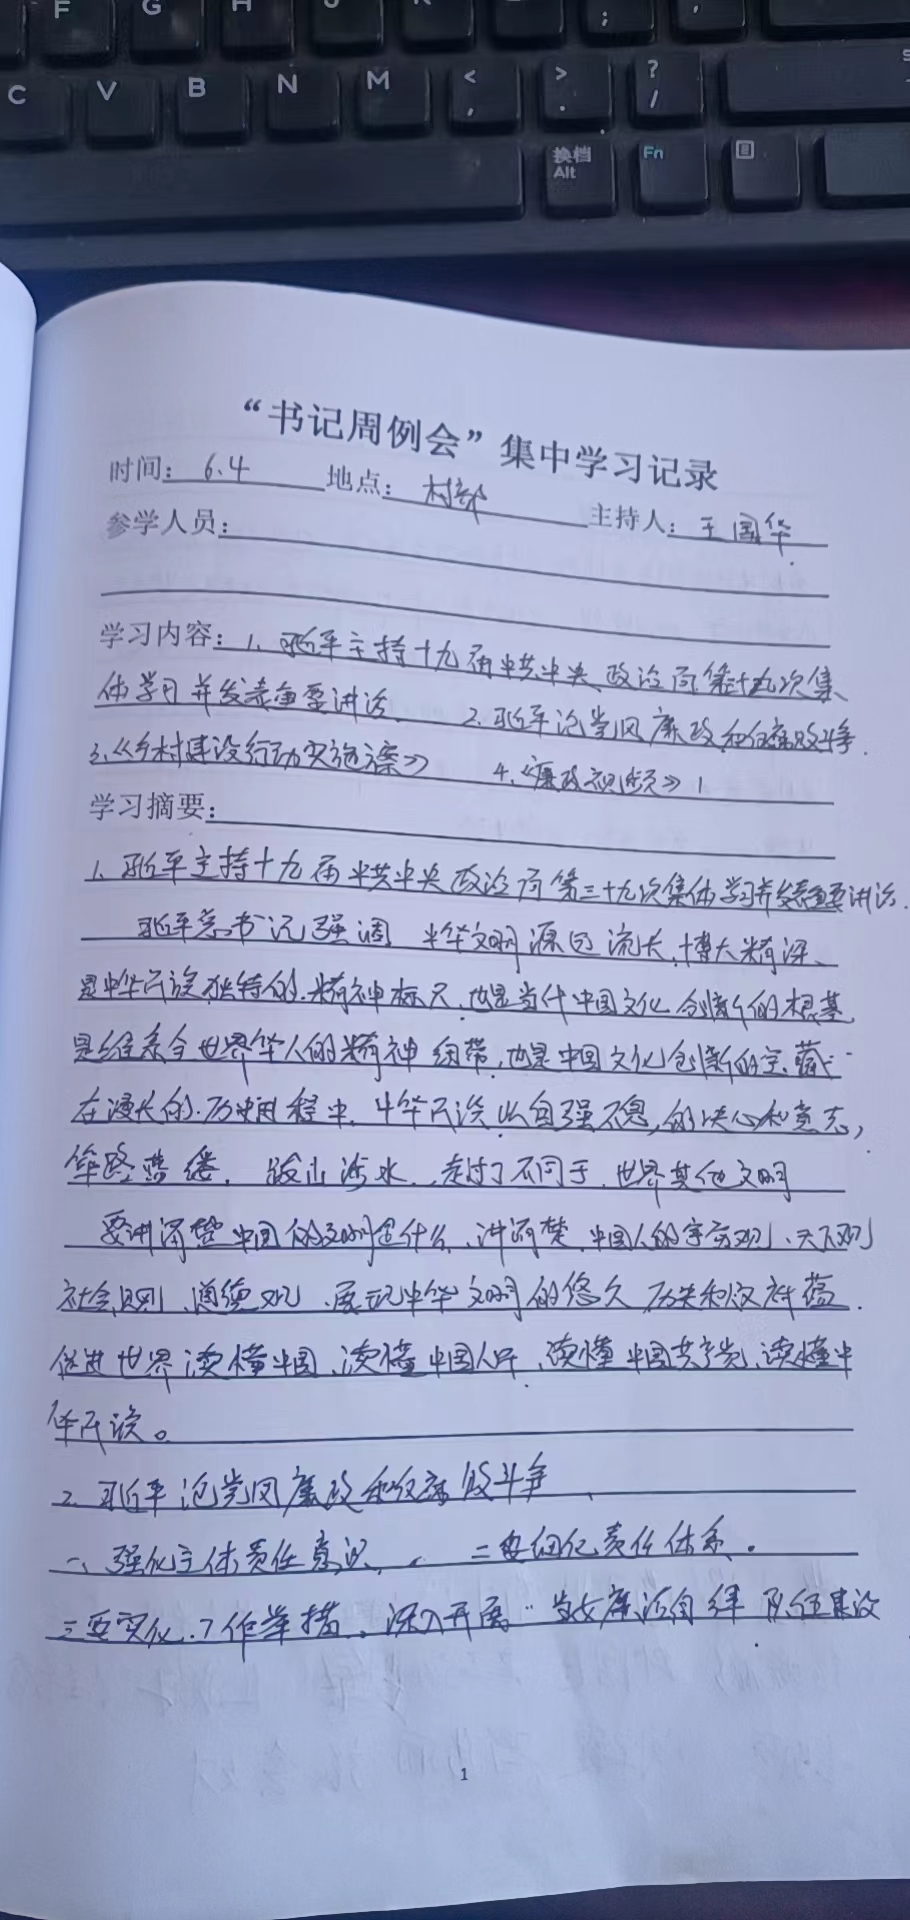 F G H J K ;
C V B N M < , > . ? /
换档 Alt Fn
“书记周例会”集中学习记录
时间：6.4 地点：村部 主持人：王国华
参学人员：
学习内容：1、习近平主持十九届中共中央政治局第三十九次集
体学习并发表重要讲话、 2、习近平论党风廉政和反腐败斗争.
3、《乡村建设行动实施方案》 4、《廉政视频》1
学习摘要：
1、习近平主持十九届中共中央政治局第三十九次集体学习并发表重要讲话.
习近平总书记强调 中华文明源远流长,博大精深、
是中华民族独特的.精神标尺,也是当代中国文化创新的根基
是维系全世界华人的精神纽带,也是中国文化创新的宝藏.
在漫长的.历史进程中,中华民族以自强不息,的决心和意志,
筚路蓝缕, 跋山涉水,走过了不同于.世界其他文明
要讲清楚中国人的文明是什么、讲清楚.中国人的宇宙观、天下观
社会观、道德观、展现中华文明的悠久历史和人文底蕴.
促进世界读懂中国、读懂中国人民、读懂中国共产党、读懂中
华民族。
2、习近平论党风廉政和反腐败斗争
一、强化主体责任意识、 二要细化责任体系.
三要实化.工作举措.深入开展“ 清廉自律 队伍建设
1